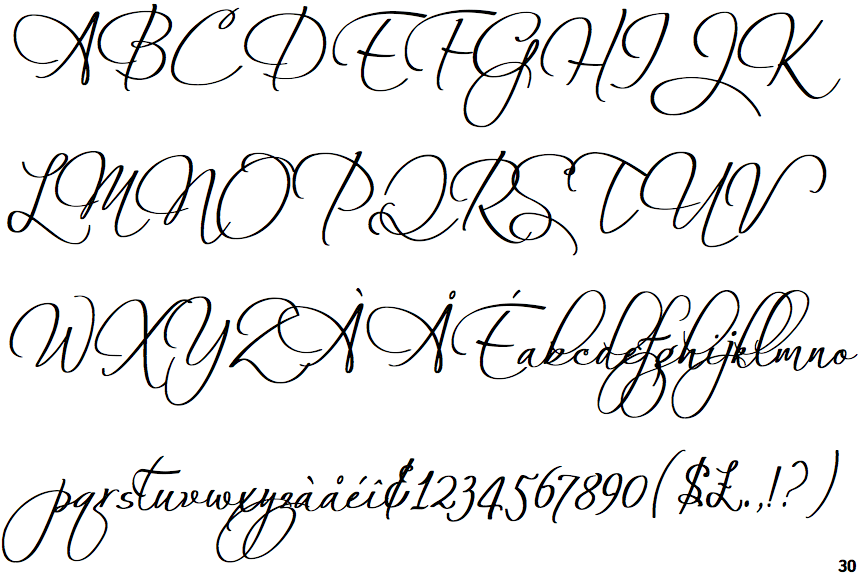 ABCDEFGHIJK
LMNOPQRSTUV
WXYZÀÅÉabcdefghijklmno
pqrstuvwxyzàåéî¢1234567890($£.,!?)
30